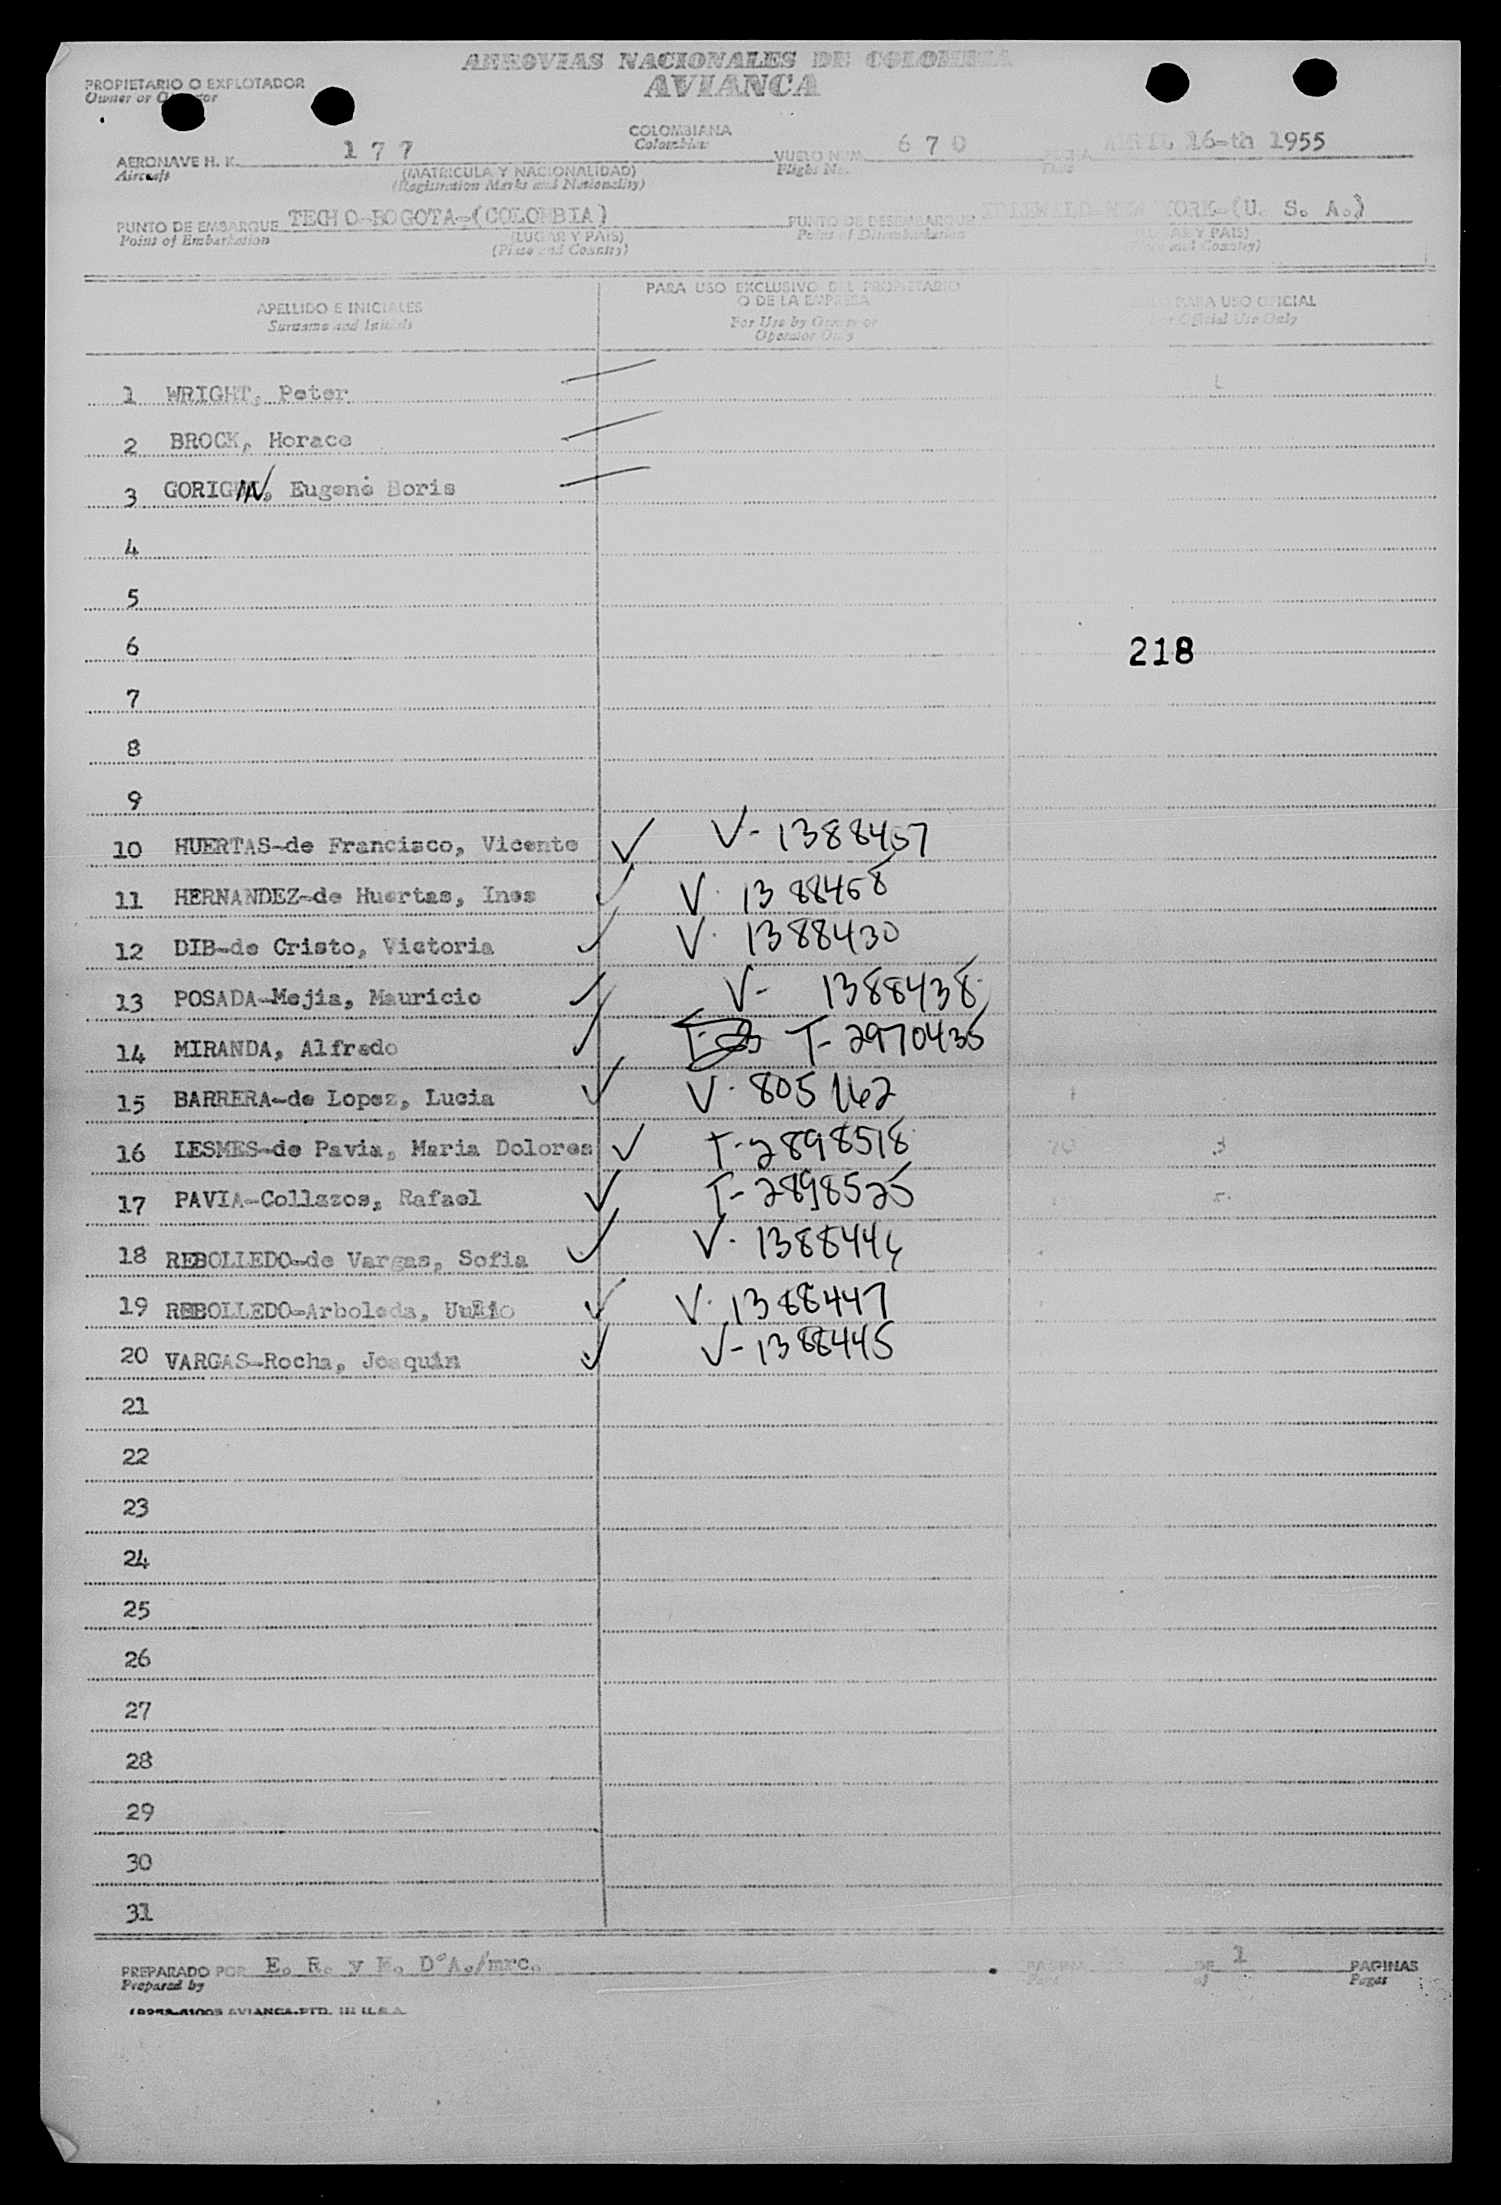 AEROVIAS NACIONALES DE COLOMBIA
AVIANCA
PROPIETARIO O EXPLOTADOR
Owner or Operator
COLOMBIANA
Colombian
AERONAVE H. K. 177 VUELO NUM. 670 FECHA APRIL 16-th 1955
Aircraft (MATRICULA Y NACIONALIDAD) Flight No. Date
(Registration Marks and Nationality)
PUNTO DE EMBARQUE TECHO-BOGOTA-(COLOMBIA) PUNTO DE DESEMBARQUE IDLEWILD-NEW YORK-(U. S. A.)
Point of Embarkation (LUGAR Y PAIS) Point of Disembarkation (LUGAR Y PAIS)
(Place and Country) (Place and Country)
APELLIDO E INICIALES PARA USO EXCLUSIVO DEL PROPIETARIO O DE LA EMPRESA SOLO PARA USO OFICIAL
Surname and Initials For Use by Owner or Operator Only For Official Use Only
1 WRIGHT, Peter
2 BROCK, Horace
3 GORIGIN, Eugene Boris
4
5
6 218
7
8
9
10 HUERTAS-de Francisco, Vicente ✓ V-1388457
11 HERNANDEZ-de Huertas, Ines ✓ V-1388458
12 DIB-de Cristo, Victoria ✓ V-1388430
13 POSADA-Mejia, Mauricio ✓ V-1388438
14 MIRANDA, Alfredo ✓ T-2970435
15 BARRERA-de Lopez, Lucia ✓ V-805162
16 LESMES-de Pavia, Maria Dolores ✓ T-2898518
17 PAVIA-Collazos, Rafael ✓ T-2898525
18 REBOLLEDO-de Vargas, Sofia ✓ V-1388444
19 REBOLLEDO-Arboleda, ✓ V-1388447
20 VARGAS-Rocha, Joaquin ✓ V-1388445
21
22
23
24
25
26
27
28
29
30
31
PREPARADO POR E. R. y E. D'A./mrc. PAGINA DE 1 PAGINAS
Prepared by Page of Pages
AVIANCA-PTD. IN U.S.A.